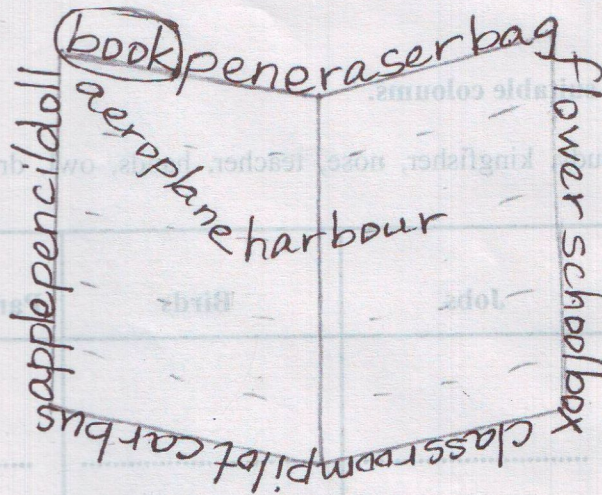 bookpeneraserbag
flowerschoolbox
classroompilotcarbus
applepencildoll
aeroplane
harbour